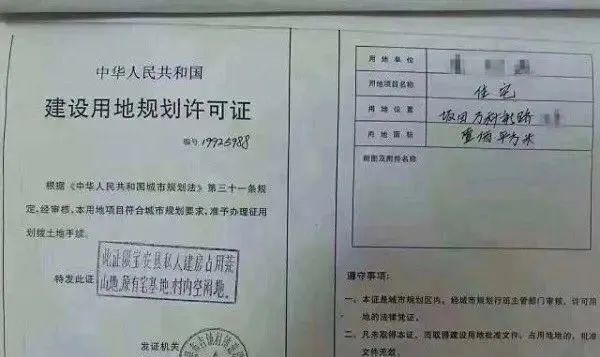 中华人民共和国
建设用地规划许可证
编号 19925988
根据《中华人民共和国城市规划法》第三十一条规
定,经审核,本用地项目符合城市规划要求,准予办理征用
划拨土地手续.
特发此证
此证限宝安县私人建房占用荒
山地,原有宅基地,村内空闲地。
发证机关
用地单位
用地项目名称 住宅
用地位置 坂田万科
用地面积 壹佰平方米
附图及附件名称
遵守事项:
一、本证是城市规划区内,经城市规划行政主管部门审核,许可用
地的法律凭证。
二、凡未取得本证,而取得建设用地批准文件、占用地地的,批准
文件无效。